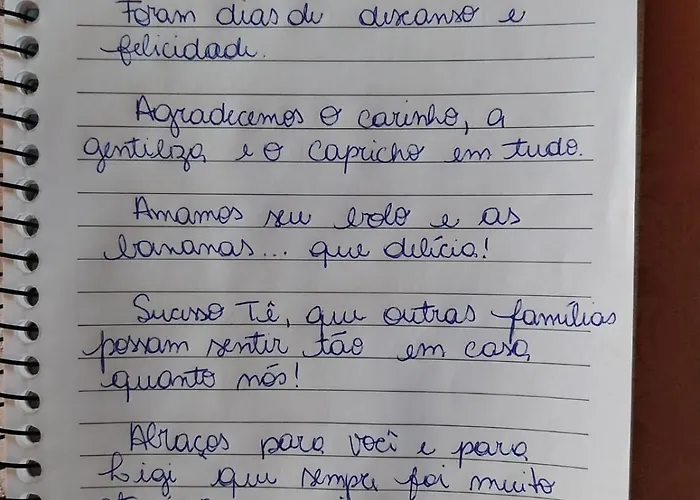 Foram dias de descanso e
felicidade.
Agradecemos o carinho, a
gentileza e o capricho em tudo.
Amamos seu bolo e as
bananas... que delícia!
Sucesso Tê, que outras famílias
possam sentir tão em casa
quanto nós!
Abraços para você e para
Ligi que sempre foi muito